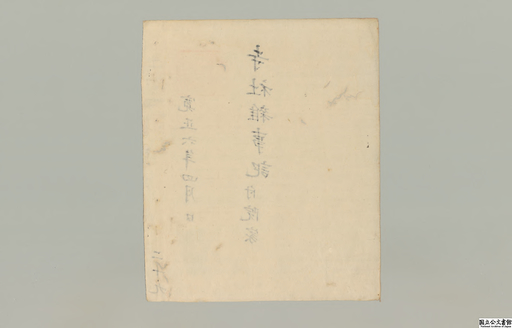 寛正六年四月日
寺社雜事記 院家
国立公文書館